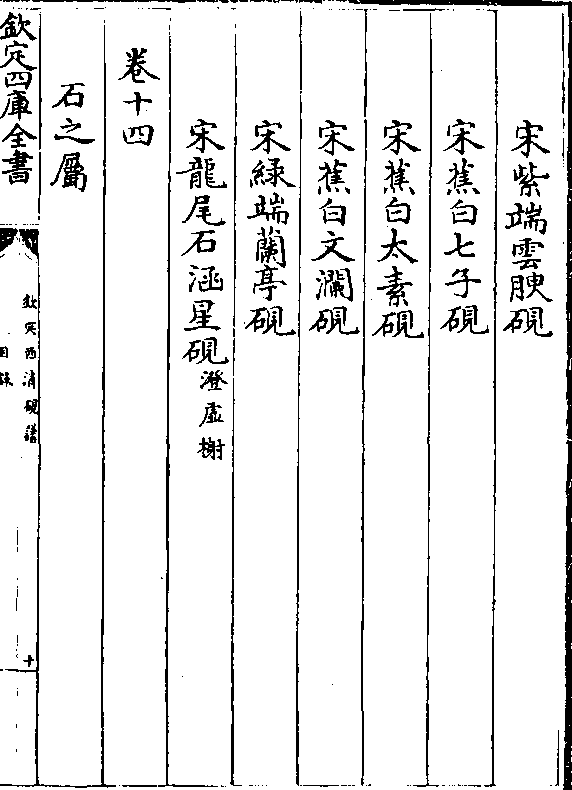 宋紫端雲腴硯
宋蕉白七子硯
宋蕉白太素硯
宋蕉白文瀾硯
宋緑端蘭亭硯
宋龍尾石涵星硯澄虛榭
卷十四
石之屬
欽定四庫全書
欽定西清硯譜
目録
十